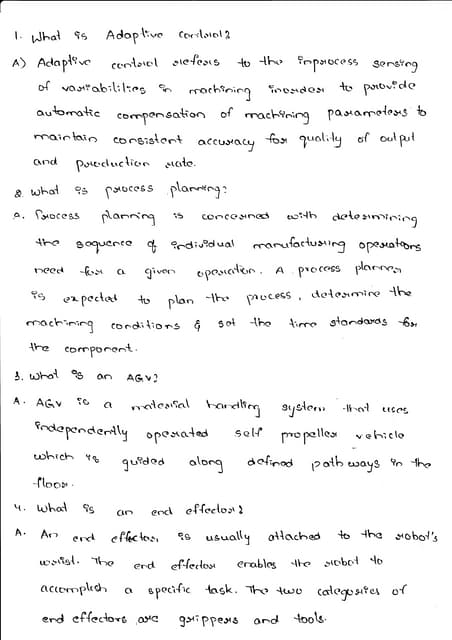 1. What is Adaptive control?
A) Adaptive control refers to the inprocess sensing
of variabilities in machining inorder to provide
automatic compensation of machining parameters to
maintain consistent accuracy for quality of output
and production rate.
2. What is process planning?
A. Process planning is concerned with determining
the sequence of individual manufacturing operations
need for a given operation. A process planner
is expected to plan the process, determine the
machining conditions & set the time standards for
the component.
3. What is an AGV?
A. AGV is a material handling system that uses
independently operated self propeller vehicle
which is guided along defined path ways in the
floor.
4. What is an end effector?
A. An end effector is usually attached to the robot's
wrist. The end effector enables the robot to
accomplish a specific task. The two categories of
end effectors are grippers and tools.